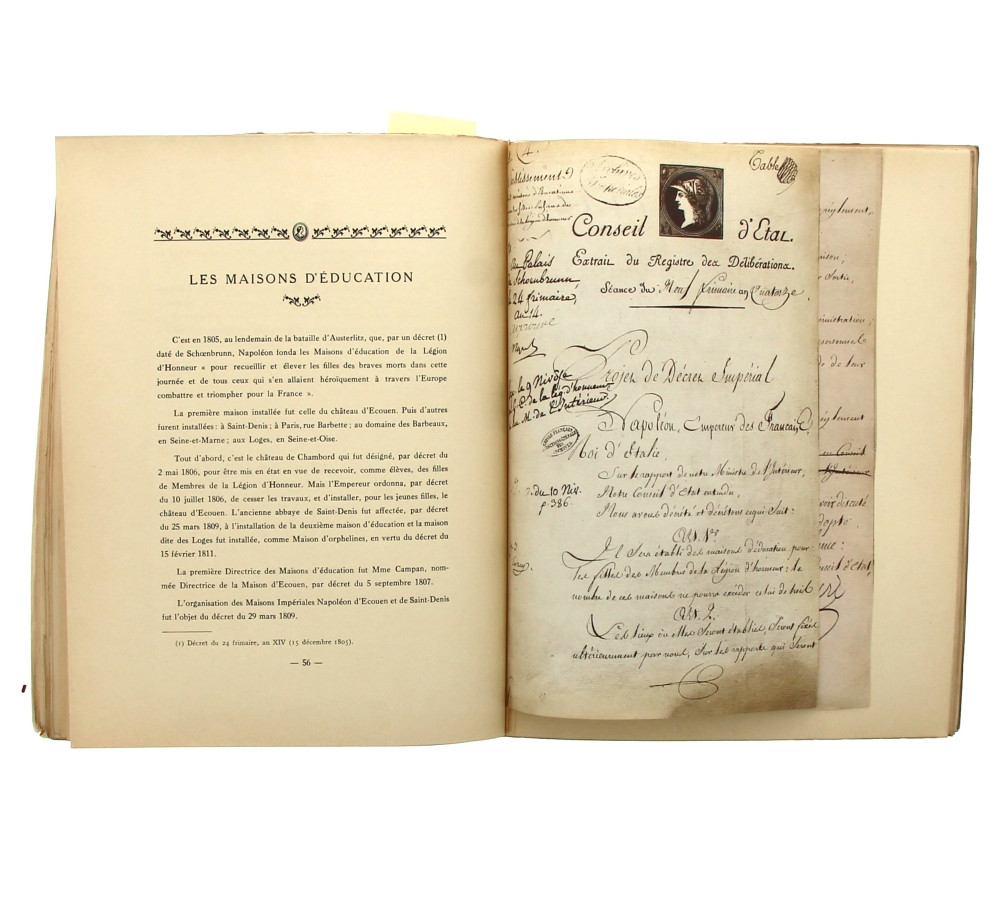 LES MAISONS D'ÉDUCATION
C'est en 1805, au lendemain de la bataille d'Austerlitz, que, par un décret (1)
daté de Schœnbrunn, Napoléon fonda les Maisons d'éducation de la Légion
d'Honneur « pour recueillir et élever les filles des braves morts dans cette
journée et de tous ceux qui s'en allaient héroïquement à travers l'Europe
combattre et triompher pour la France ».
La première maison installée fut celle du château d'Ecouen. Puis d'autres
furent installées : à Saint-Denis ; à Paris, rue Barbette ; au domaine des Barbeaux,
en Seine-et-Marne ; aux Loges, en Seine-et-Oise.
Tout d'abord, c'est le château de Chambord qui fut désigné, par décret du
2 mai 1806, pour être mis en état en vue de recevoir, comme élèves, des filles
de Membres de la Légion d'Honneur. Mais l'Empereur ordonna, par décret
du 10 juillet 1806, de cesser les travaux, et d'installer, pour les jeunes filles, le
château d'Ecouen. L'ancienne abbaye de Saint-Denis fut affectée, par décret
du 25 mars 1809, à l'installation de la deuxième maison d'éducation et la maison
dite des Loges fut installée, comme Maison d'orphelines, en vertu du décret du
15 février 1811.
La première Directrice des Maisons d'éducation fut Mme Campan, nom-
mée Directrice de la Maison d'Ecouen, par décret du 5 septembre 1807.
L'organisation des Maisons Impériales Napoléon d'Ecouen et de Saint-Denis
fut l'objet du décret du 29 mars 1809.
(1) Décret du 24 frimaire, an XIV (15 décembre 1805).
— 56 —
Table
Conseil d'Etat.
Extrait du Registre des Délibérations.
Séance du Neuf frimaire an Quatorze.
au Palais
de Schoenbrunn,
24 frimaire,
an 14.
Projet de Décret Impérial
le 9 Nivôse
de la lég. d'honneur
M. de l'Intérieur.
Napoléon, Empereur des Français,
Roi d'Italie,
Sur le rapport de notre Ministre de l'Intérieur,
du 10 Niv.
p. 386.
Notre Conseil d'Etat entendu,
Nous avons décrété et décrétons ce qui suit :
Art. 1er
Il sera établi des maisons d'éducation pour
les filles des Membres de la Légion d'honneur : le
nombre de ces maisons ne pourra excéder celui de trois
Art. 2.
Les lieux où elles seront établies, seront fixés
ultérieurement par nous, sur les rapports qui seront